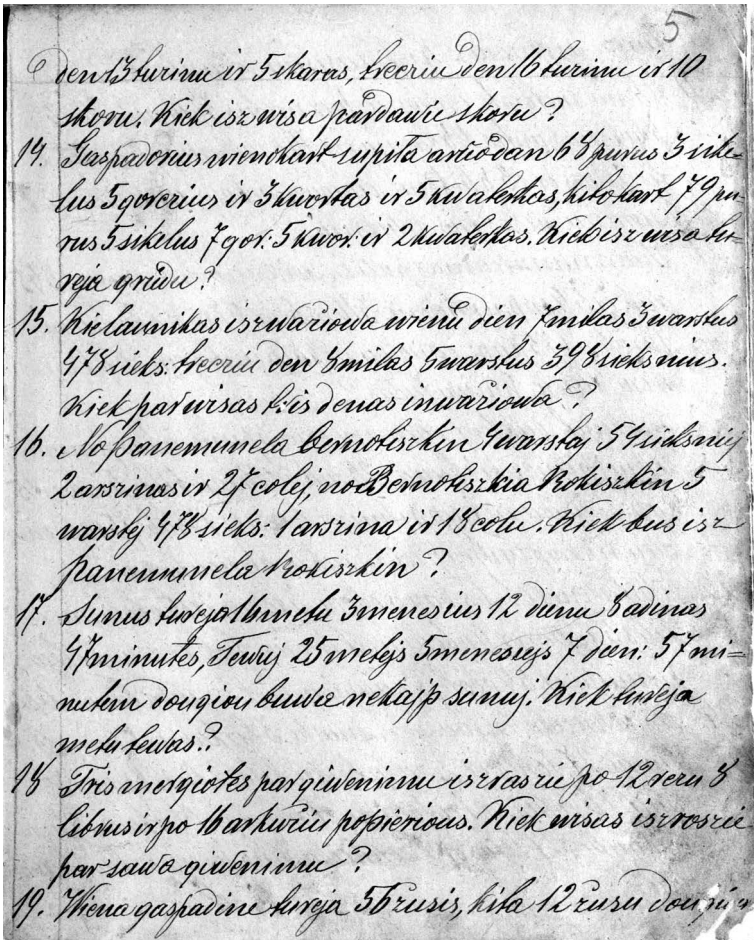 5
den 13 turinu ir 5 skaras, trecziu den 16 turinu ir 10
skoru. Kiek isz wisa pardawie skoru?
14. Gaspadorius wienokart supila arůodan 68 purus 3 sike-
lus 5 gorczius ir 3 kwortas ir 5 kwaterkas, kitokart 79 pu-
rus 5 sikelus 7 gor: 5 kwor: ir 2 kwaterkas. Kiek isz wisa tu-
reja grudu?
15. Kielaunikas iszważiowa wienu dien 7 milas 3 warstus
478 sieks: trecziu den 8 milas 5 warstus 398 sieksnius.
Kiek par wisas tris denas inważiowa?
16. No Panemunela Bernotiszkin 4 warstaj 54 sieksniej
2 arszinas ir 27 colej, no Bernotiszkia Rokiszkin 5
warstej 478 sieks: 1 arszina ir 18 colu. Kiek bus isz
panemunela Rokiszkin?
17. Sunus tureja 16 metu 3 menesius 12 dienu 8 adinas
47 minutes, Tewuj 25 metejs 5 menesejs 7 dien: 57 mi-
nutem dougiou buwa nekajp sunuj. Kiek tureja
metu tewas?
18 Tris mergiotes par giwenimu iszraszie po 12 rezu 8
librus ir po 16 arkuśiu popierious. Kiek wisas iszroszie
par sawa giwenimu?
19. Wiena gaspadine tureja 56 żusis, kita 12 żusu